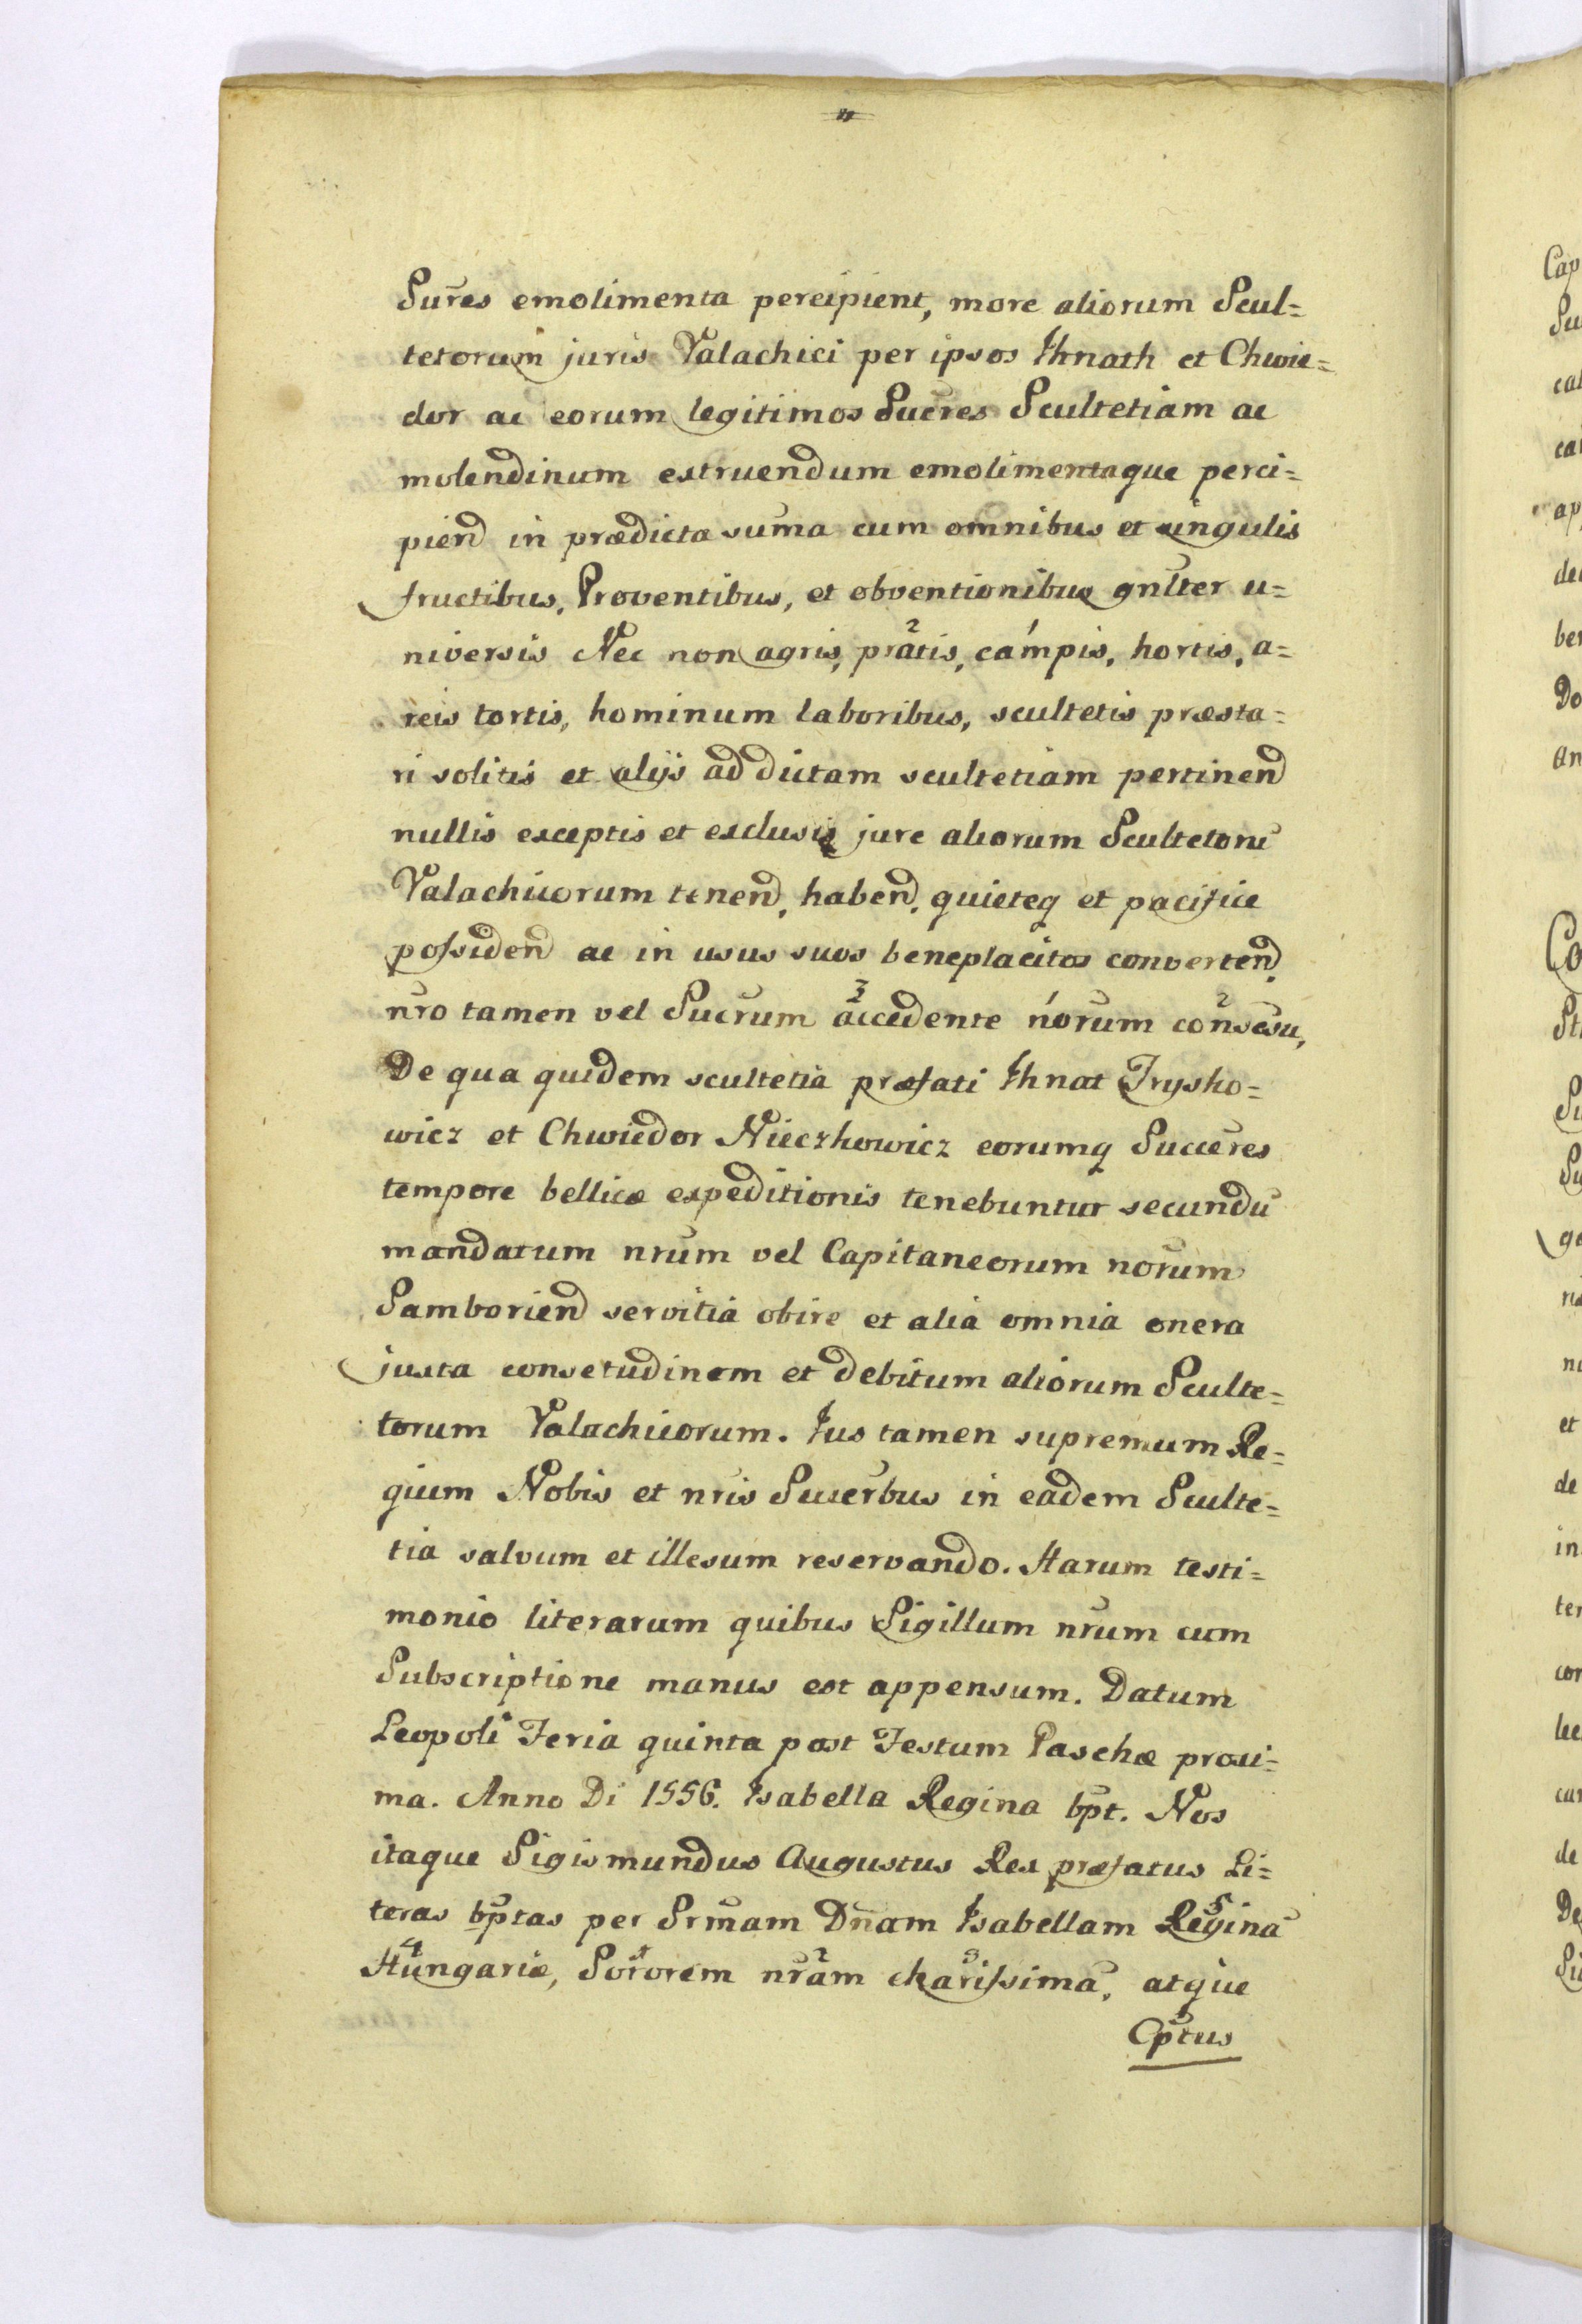 Sures emolimenta percipient, more aliorum Scul=
tetorum juris Valachici per ipsos Ihnath et Chwie=
dor ac eorum legitimos Sucres Scultetiam ac
molendinum extruendum emolimentaque perci=
piend in prædicta suma cum omnibus et singulis
fructibus, Proventibus, et obventionibus gnlter u=
niversis Nec non agris, pratis, campis, hortis, a=
reis tortis, hominum laboribus, scultetis præsta=
ri solitis et alijs ad dictam scultetiam pertinend
nullis exceptis et exclusis jure aliorum Scultetoru
Valachicorum tenend, habend, quieteq et pacifice
possidend ac in usus suos beneplacitos convertend,
nro tamen vel Sucrum accedente norum consesu,
De qua quidem scultetia præfati Ihnat Irysko=
wicz et Chwiedor Nieczkowicz eorumq Succeres
tempore bellicæ expeditionis tenebuntur secundu
mandatum nrum vel Capitaneorum norum
Samboriend servitia obire et alia omnia onera
juxta consetudinem et debitum aliorum Sculte=
torum Valachicorum. Ius tamen supremum Re=
gium Nobis et nris Succerbus in eadem Sculte=
tia salvum et illesum reservando. Harum testi=
monio literarum quibus Sigillum nrum cum
Subscriptione manus est appensum. Datum
Leopoli Feria quinta post Festum Paschæ proxi=
ma. Anno Di 1556. Isabella Regina bpt. Nos
itaque Sigismundus Augustus Rex præfatus Li=
teras bptas per Srmam Dnam Isabellam Regina
Hungariæ, Sororem nram charissima, atque
Cptus